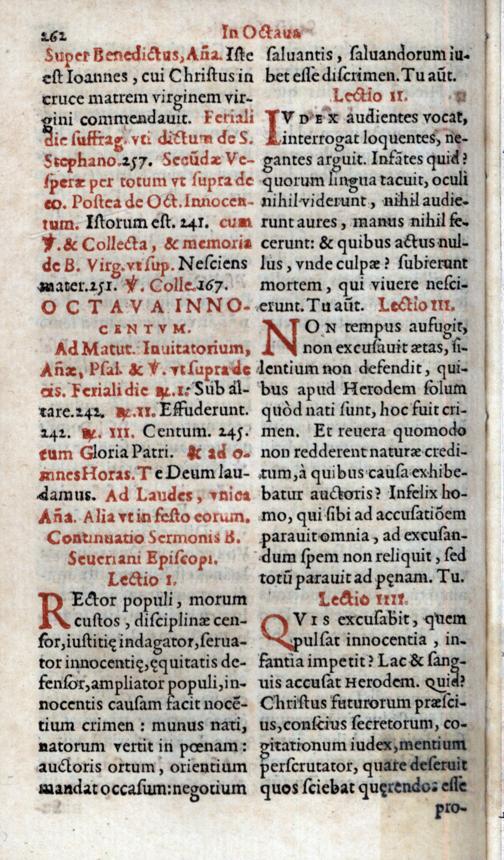 262
In Octaua
Super Benedictus, Aña. Iste
est Ioannes, cui Christus in
cruce matrem virginem vir-
gini commendauit. Feriali
die suffrag. vti dictum de S.
Stephano. 257. Secūdæ Ve-
speræ per totum vt supra de
eo. Postea de Oct. Innocen-
tum. Istorum est. 241. cum
℣. & Collecta, & memoria
de B. Virg. vt sup. Nesciens
mater. 251. ℣. Colle. 167.
OCTAVA INNO-
CENTVM.
Ad Matut. Inuitatorium,
Añæ, Psal. & ℣. vt supra de
eis. Feriali die ℟. I. Sub al-
tare. 242. ℟. II. Effuderunt.
242. ℟. III. Centum. 245.
cum Gloria Patri. & ad o-
mnes Horas. Te Deum lau-
damus. Ad Laudes, vnica
Aña. Alia vt in festo eorum.
Continuatio Sermonis B.
Seueriani Episcopi.
Lectio I.
REctor populi, morum
custos, disciplinæ cen-
sor, iustitię indagator, serua-
tor innocentię, ęquitatis de-
fensor, ampliator populi, in-
nocentis causam facit nocē-
tium crimen: munus nati,
natorum vertit in pœnam:
auctoris ortum, orientium
mandat occasum: negotium
saluantis, saluandorum iu-
bet esse discrimen. Tu aūt.
Lectio II.
IVDEX audientes vocat,
interrogat loquentes, ne-
gantes arguit. Infātes quid?
quorum lingua tacuit, oculi
nihil viderunt, nihil audie-
runt aures, manus nihil fe-
cerunt: & quibus actus nul-
lus, vnde culpæ? subierunt
mortem, qui viuere nesci-
erunt. Tu aūt. Lectio III.
NON tempus aufugit,
non excusauit ætas, si-
lentium non defendit, qui-
bus apud Herodem solum
quòd nati sunt, hoc fuit cri-
men. Et reuera quomodo
non redderent naturæ credi-
tum, à quibus causa exhibe-
batur auctoris? Infelix ho-
mo, qui sibi ad accusatiōem
parauit omnia, ad excusan-
dum spem non reliquit, sed
totū parauit ad pęnam. Tu.
Lectio IIII.
QVIS excusabit, quem
pulsat innocentia, in-
fantia impetit? Lac & sang-
uis accusat Herodem. Quid?
Christus futurorum præsci-
us, conscius secretorum, co-
gitationum iudex, mentium
perscrutator, quare deseruit
quos sciebat quęrendos esse
pro-